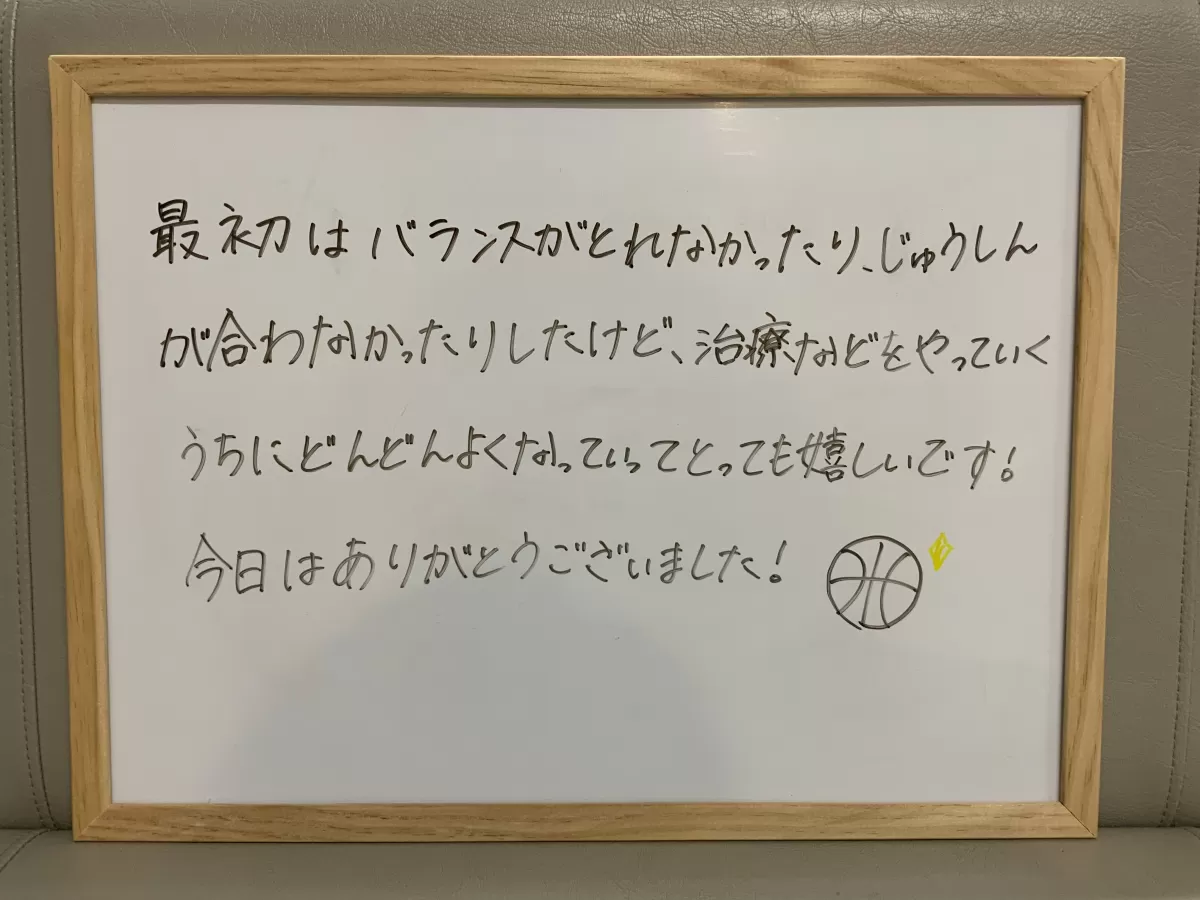 最初はバランスがとれなかったり、じゅうしん
が合わなかったりしたけど、治療などをやっていく
うちにどんどんよくなっていってとっても嬉しいです!
今日はありがとうございました!